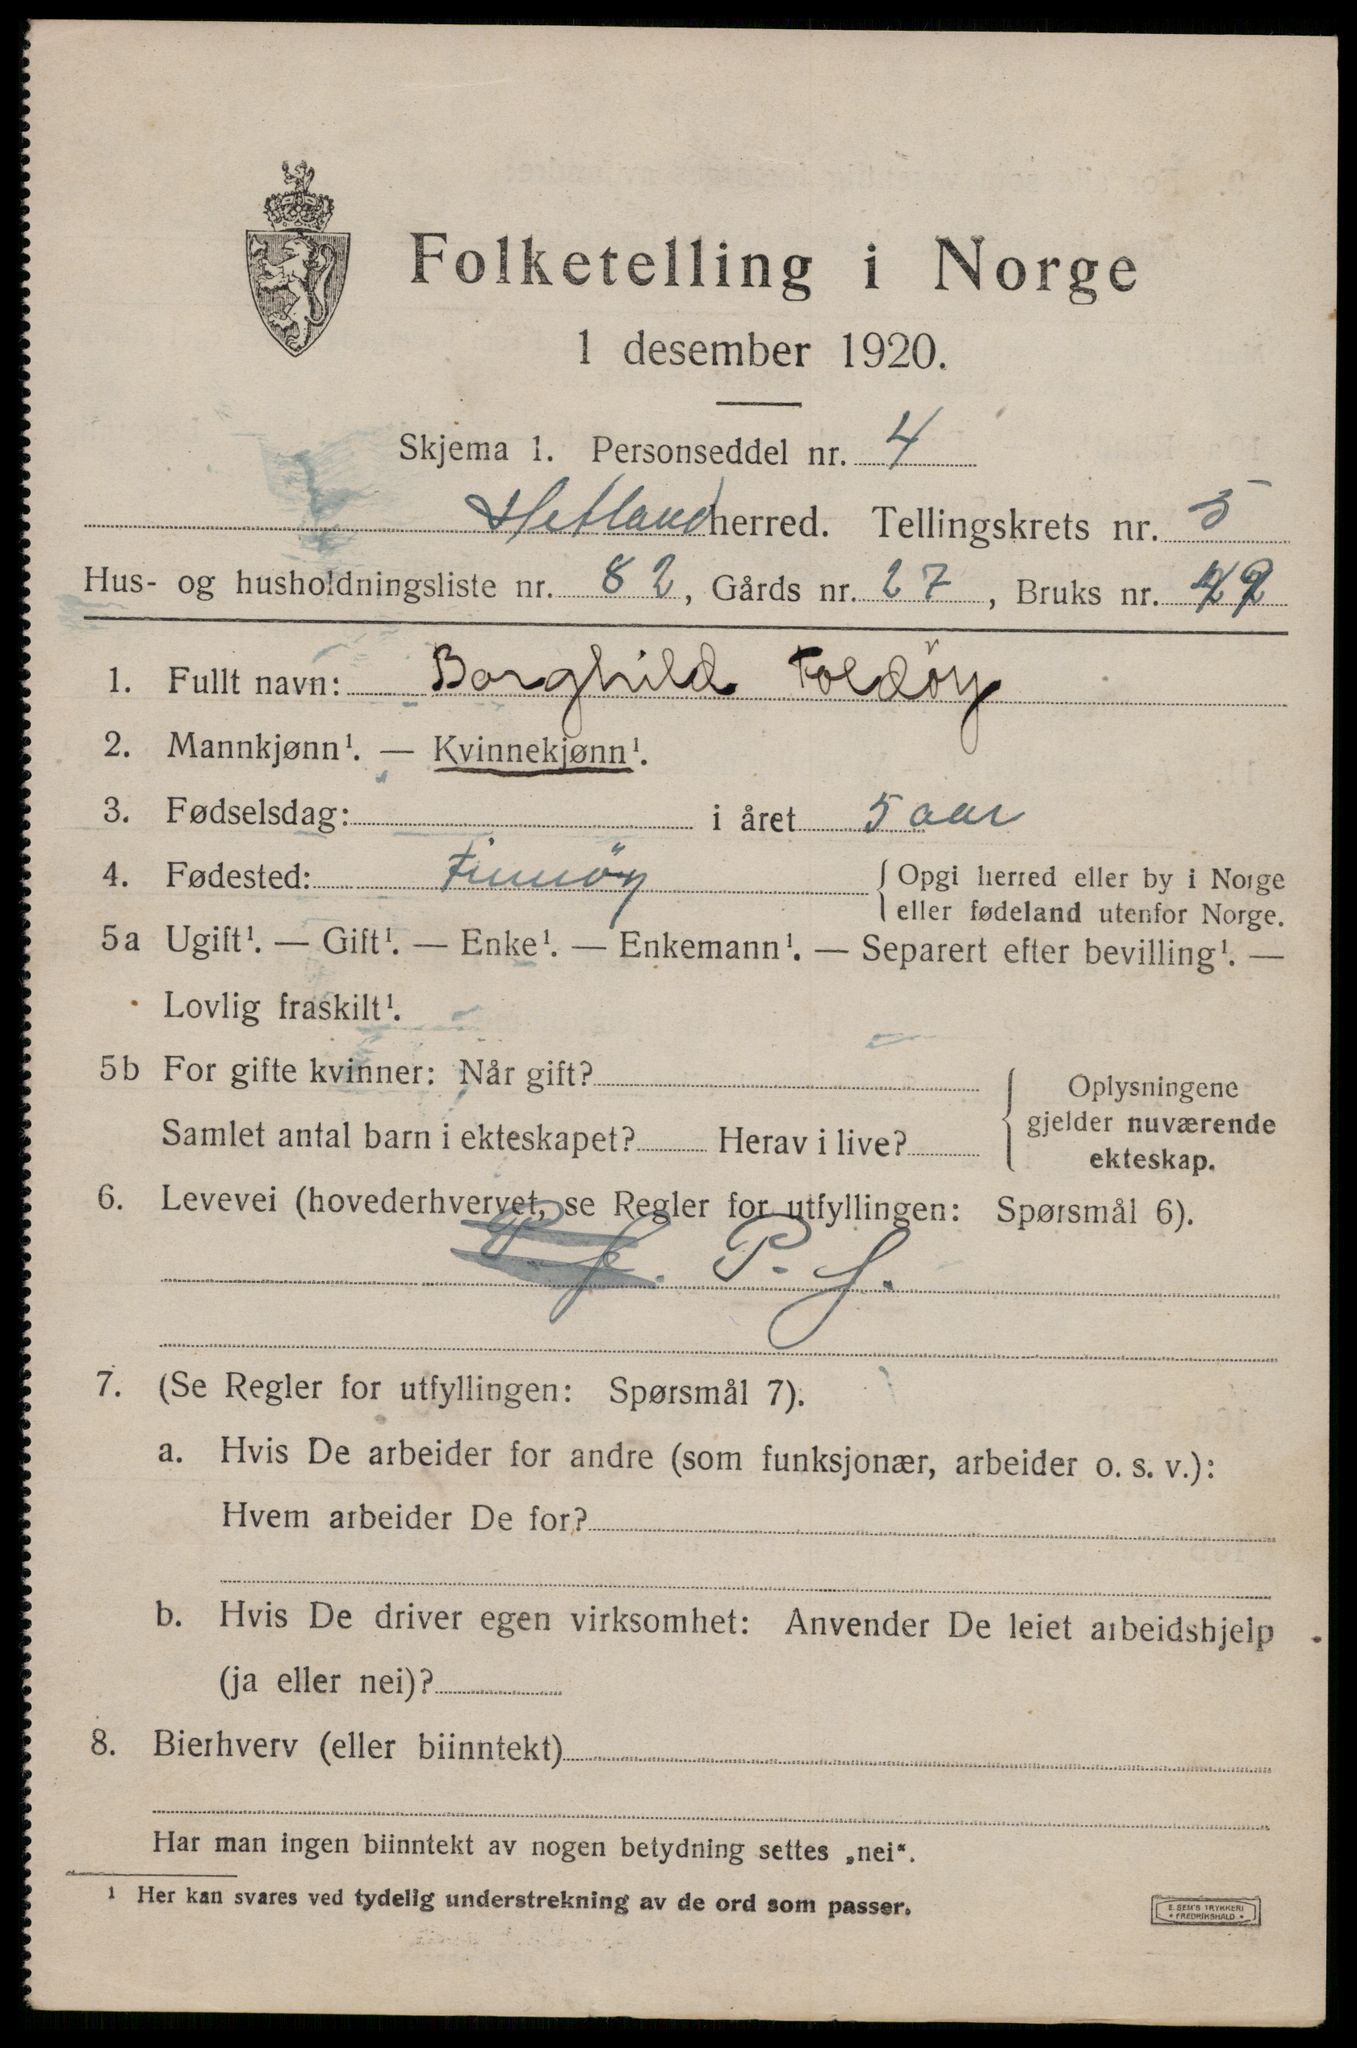 Folketelling i Norge
1 desember 1920.
Skjema 1. Personseddel nr. 4
Hetland herred. Tellingskrets nr. 5
Hus- og husholdningsliste nr. 82, Gårds nr. 27, Bruks nr.
1. Fullt navn: Borghild Foldöy
2. Mannkjønn¹. — Kvinnekjønn¹.
3. Fødselsdag: i året 5 aar
4. Fødested: Finnöy { Opgi herred eller by i Norge
eller fødeland utenfor Norge.
5a Ugift¹. — Gift¹. — Enke¹. — Enkemann¹. — Separert efter bevilling¹. —
Lovlig fraskilt¹.
5b For gifte kvinner: Når gift?
Samlet antal barn i ekteskapet? Herav i live?
{ Oplysningene
gjelder nuværende
ekteskap.
6. Levevei (hovederhvervet, se Regler for utfyllingen: Spørsmål 6).
P. f. P. f.
7. (Se Regler for utfyllingen: Spørsmål 7).
a. Hvis De arbeider for andre (som funksjonær, arbeider o. s. v.):
Hvem arbeider De for?
b. Hvis De driver egen virksomhet: Anvender De leiet arbeidshjelp
(ja eller nei)?
8. Bierhverv (eller biinntekt)
Har man ingen biinntekt av nogen betydning settes „nei“.
¹ Her kan svares ved tydelig understrekning av de ord som passer.
E. SEM'S TRYKKERI
• FREDRIKSHALD •